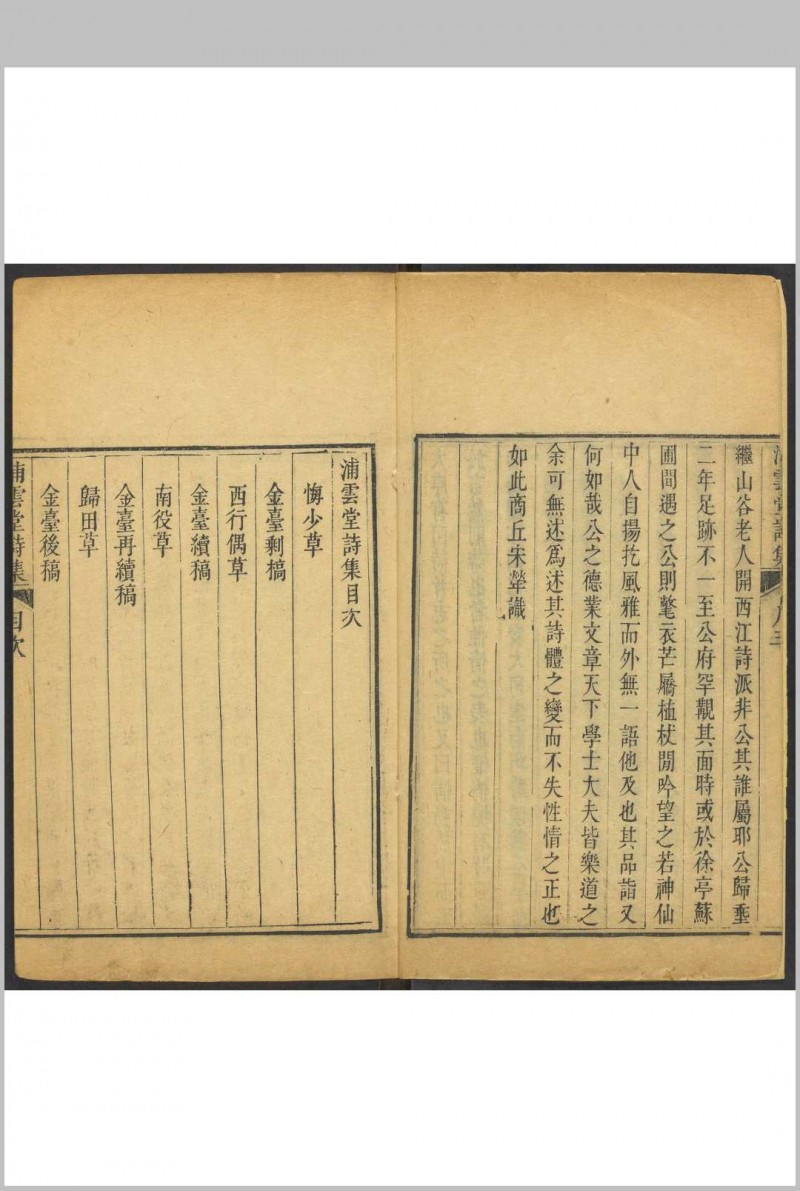 繼山谷老人開西江詩派非公其誰屬耶公歸垂
二年足跡不一至公府罕覯其面時或於徐亭蘇
圃間遇之公則氅衣芒屩植杖閒吟望之若神仙
中人自揚扢風雅而外無一語他及也其品詣又
何如哉公之德業文章天下學士大夫皆樂道之
余可無述爲述其詩體之變而不失性情之正也
如此商丘宋犖識
浦雲堂詩集目次
悔少草
金臺剩稿
西行偶草
金臺續稿
南役草
金臺再續稿
歸田草
金臺後稿
浦雲堂詩集
目次